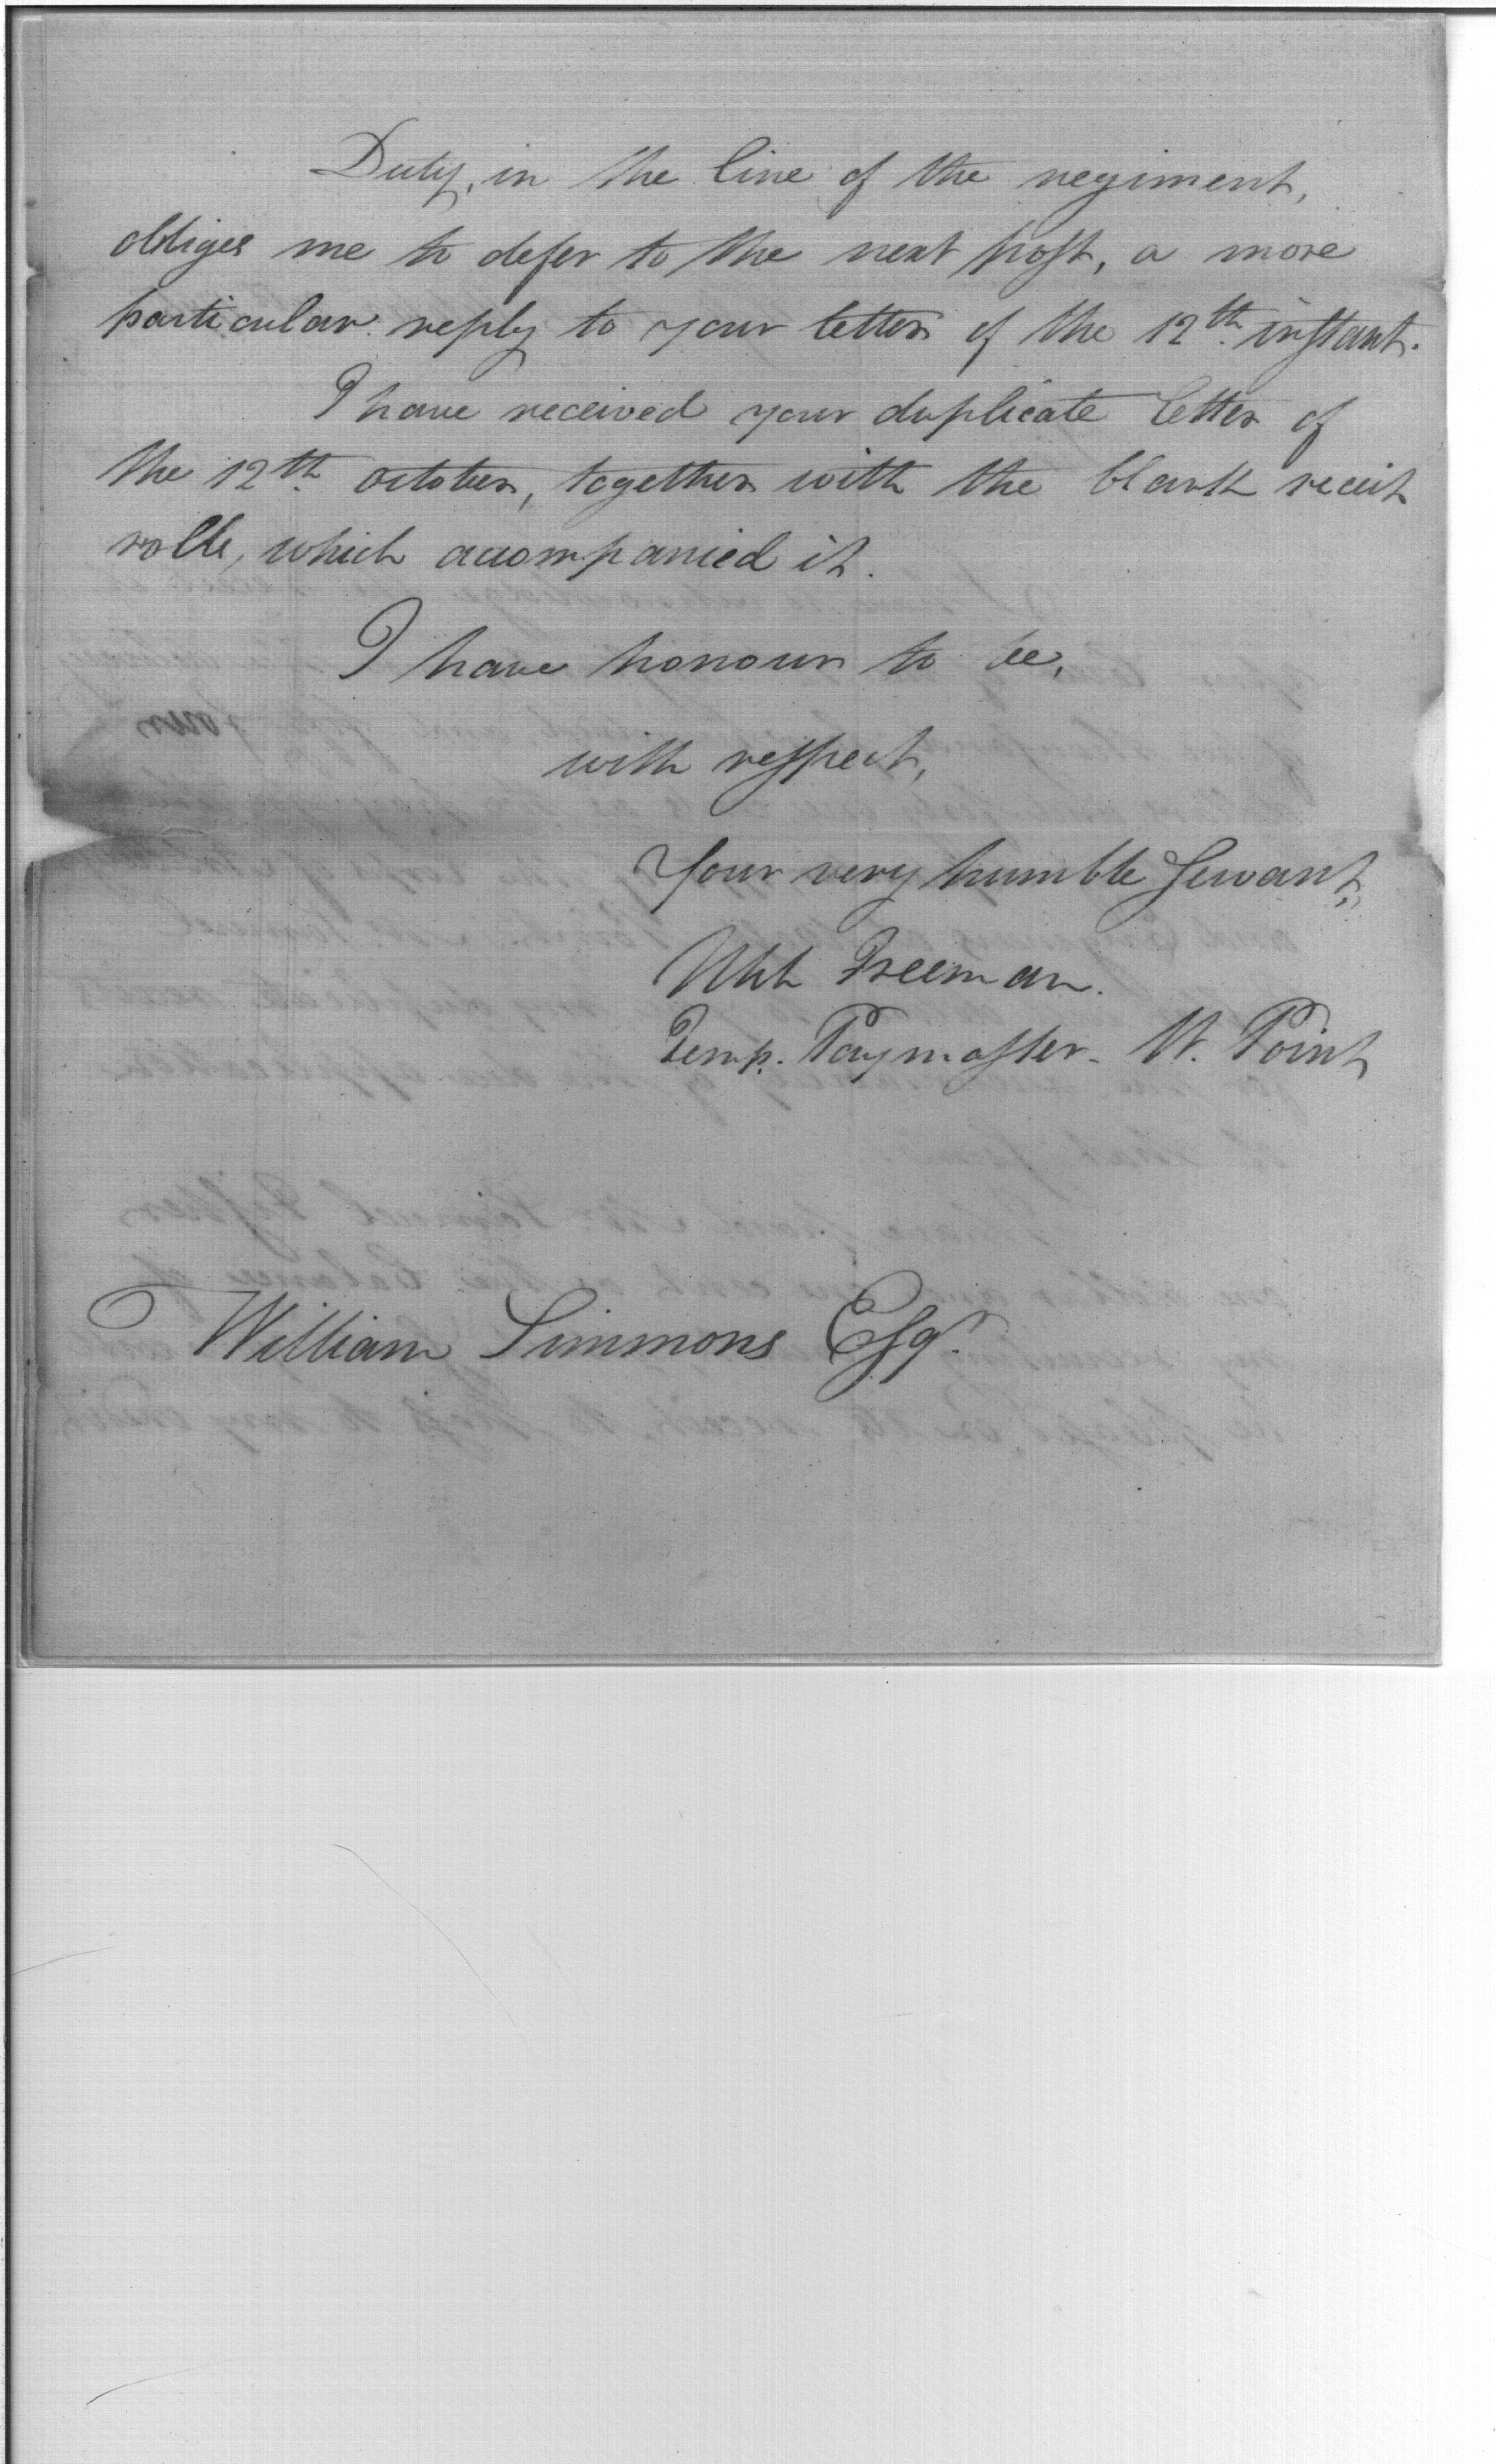 Duty, in the line of the regiment,
obliges me to defer to the next post, a more
particular reply to your letter of the 12th instant.
I have received your duplicate letter of
the 12th october, together with the blank receit
rolls, which accompanied it.
I have honour to be,
with respect,
Your very humble Servant,
Freeman.
Temp. Paymaster - W. Point
William Simmons Esqr.